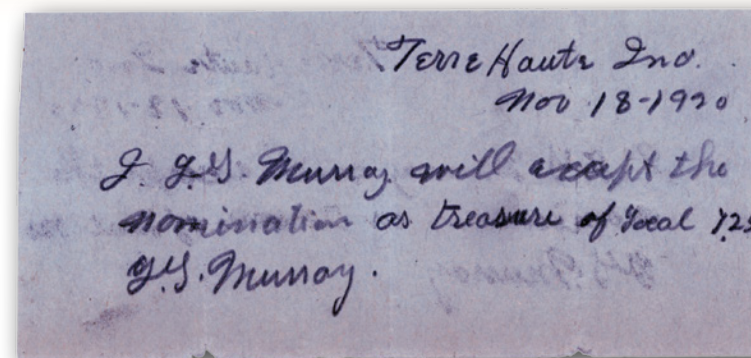 Terre Haute Ind.
Nov 18-1920
I. G.G. Murray will accept the
nomination as treasure of Local 725
G.G. Murray.